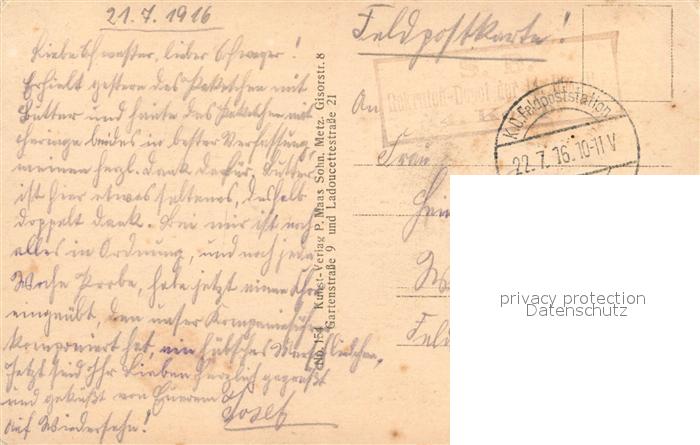 21.7.1916
Liebe Schwester, lieber Schwager!
Erhielt gestern das Paketchen mit
Butter und heute das Paketchen mit
Heringe beides in bester Verfassung,
meinen herzl. Dank dafür, Butter
ist hier etwas seltenes, deshalb
doppelt Dank. Bei mir ist noch
alles in Ordnung, und noch jede
Woche Probe, habe jetzt einen Chor
eingeübt den unser Kompanieführer
komponiert hat, ein hübsches Marschliedchen,
Jetzt seid Ihr Lieben herzlich gegrüßt
und geküßt von Eurem
Josef
Auf Wiedersehn!
No. 154 Kunst-Verlag P. Maas Sohn, Metz. Gisorstr. 8
Gartenstraße 9 und Ladoucettestraße 21
Feldpostkarte!
S. B.
Rekruten-Depot der
K.D. Feldpoststation
22.7.16. 10-11 V
An
Frau
privacy protection
Datenschutz